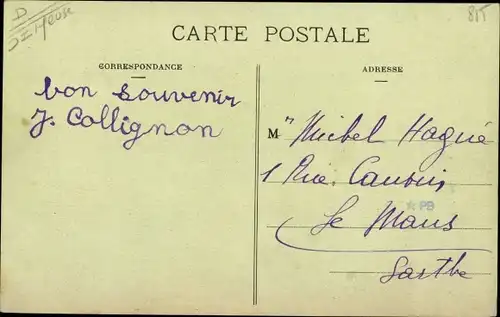 CARTE POSTALE
CORRESPONDANCE
ADRESSE
bon souvenir
J. Collignon
M
Michel Hagué
1 Rue
Le Mans
Sarthe
PB
D
Meuse
815